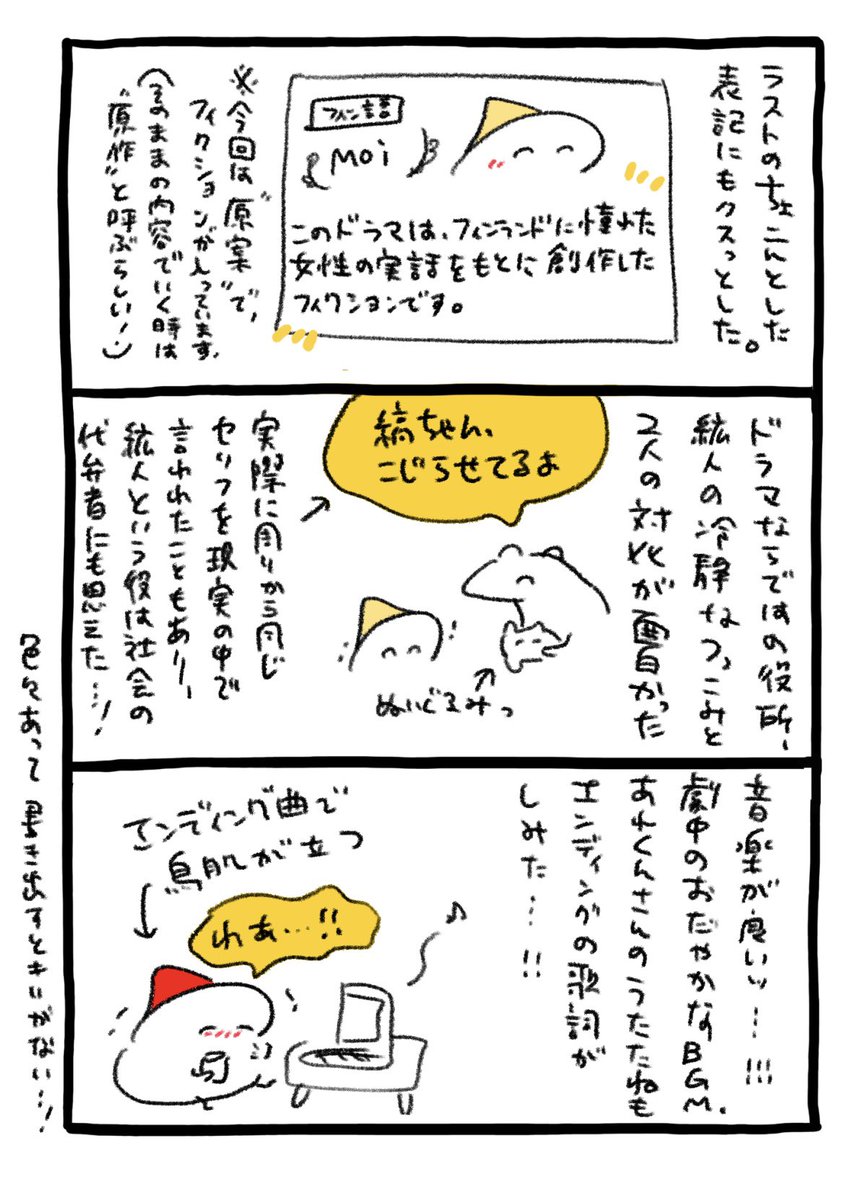 ラストのちょこんとした
表記にもクスっとした。
フィン語
moi
このドラマは、フィンランドに憧れた
女性の実話をもとに創作した
フィクションです。
※今回は"原案"で、
フィクションが入っています。
(そのままの内容でいく時は
"原作"と呼ぶらしい!)
ドラマならではの役所、
絋人の冷静なつっこみと
2人の対比が面白かった
縞ちゃん、
こじらせてるよ
ぬいぐるみっ
実際に周りから同じ
セリフを現実の中で
言われたこともあり、
絋人という役は社会の
代弁者にも思えた…!
音楽が良いッ…!!!
劇中のおだやかなBGM、
あれくんさんのうたたねも
エンディングの歌詞が
しみた…!!
エンディング曲で
鳥肌が立つ
わぁ…!!
色々あって書き出すときりがない…!